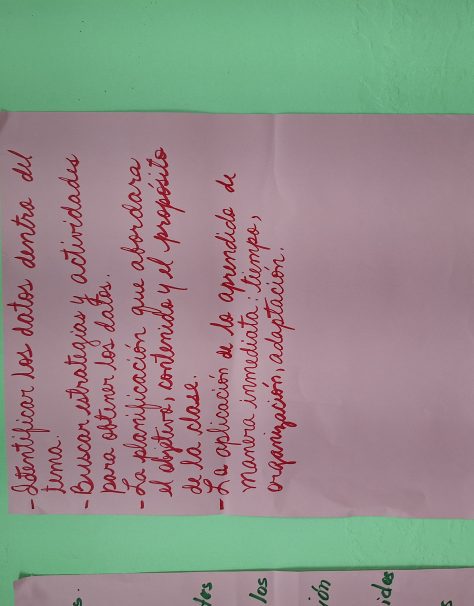 - Identificar los datos dentro del
tema.
- Buscar estrategias y actividades
para obtner los datos.
- La planificación que abordara
el objetivo, contenido y el propósito
de la clase.
- La aplicación de lo aprendido de
manera inmediata: tiempo,
organización, adaptación.
s.
tes
los
ión
ides
s